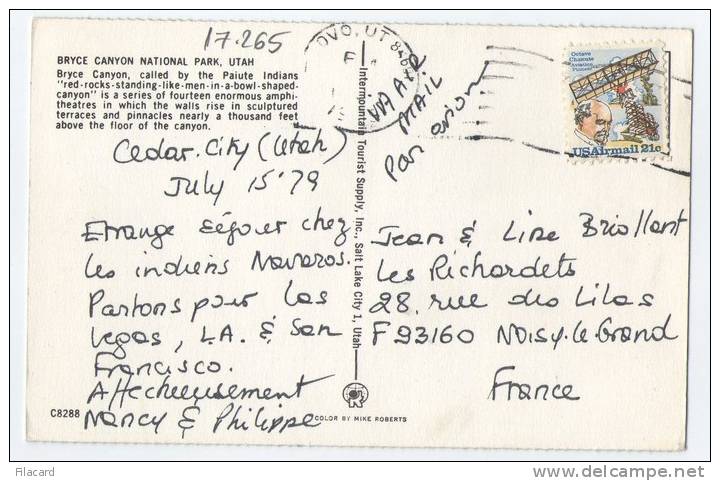 17.265
BRYCE CANYON NATIONAL PARK, UTAH
Bryce Canyon, called by the Paiute Indians
"red-rocks-standing-like-men-in-a-bowl-shaped-
canyon" is a series of fourteen enormous amphi-
theatres in which the walls rise in sculptured
terraces and pinnacles nearly a thousand feet
above the floor of the canyon.
Cedar.City (Utah)
July 15'79
Etrange séjour chez
les indiens Navaros.
Partons pour Las
Vegas, L.A. & San
Francisco.
Affectueusement
Nancy & Philippe
C8288
COLOR BY MIKE ROBERTS
Intermountain Tourist Supply, Inc., Salt Lake City 1, Utah
OVO, UT 846
VIA AIR
MAIL
Par avion
Octave
Chanute
Aviation
Pioneer
USAirmail 21c
Jean & Line Briollant
Les Richardets
28, rue des Lilas
F 93160 Noisy-le-Grand
France
Filacard
www.delcampe.net